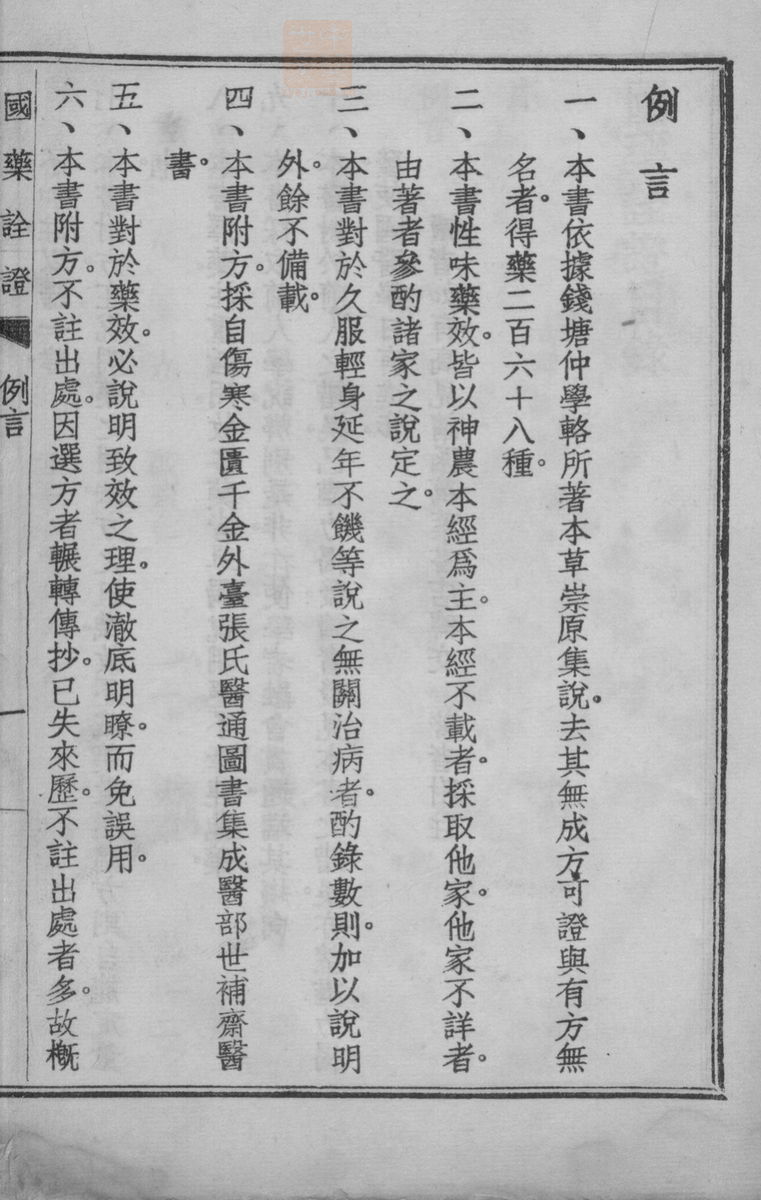 例言
一、本書依據錢塘仲學輅所著本草崇原集說。去其無成方可證與有方無
名者。得藥二百六十八種。
二、本書性味藥效。皆以神農本經爲主。本經不載者。採取他家。他家不詳者。
由著者參酌諸家之說定之。
三、本書對於久服輕身延年不饑等說之無關治病者。酌錄數則。加以說明
外。餘不備載。
四、本書附方。採自傷寒金匱千金外臺張氏醫通圖書集成醫部世補齋醫
書。
五、本書對於藥效。必說明致效之理。使澈底明瞭。而免誤用。
六、本書附方。不註出處。因選方者輾轉傳抄。已失來歷。不註出處者多。故槪
國藥詮證 例言 一